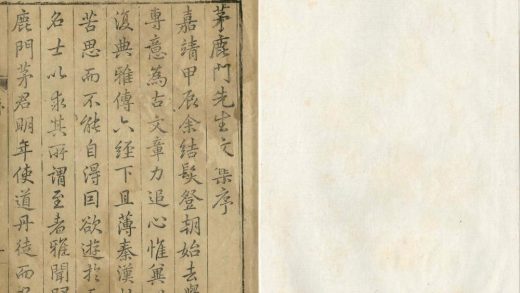 茅鹿門先生文集序
嘉靖甲辰余結髮登朝始去
專意為古文章力追心惟冀
復典雅傳六經下且薄秦漢
苦思而不能自得囙欲遊於
名士以求其所謂至者雅聞
鹿門茅君明年使道丹徒而